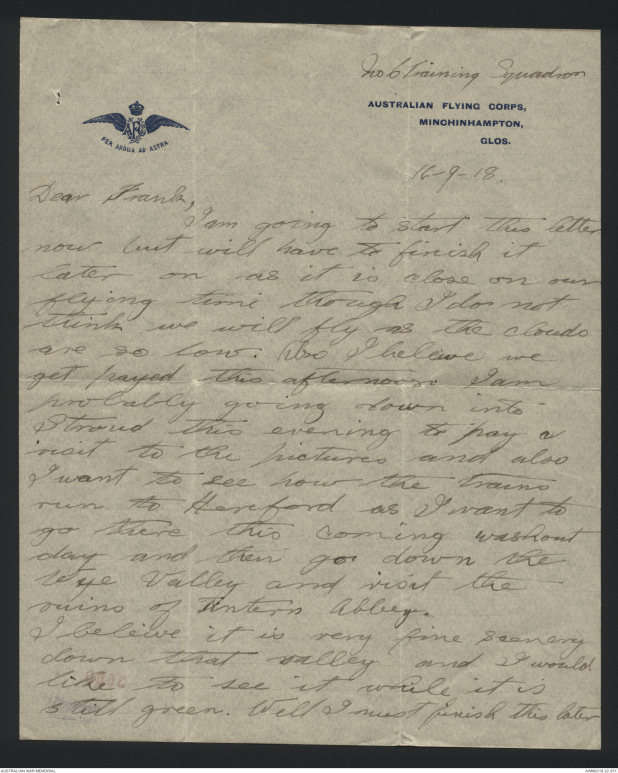 No 6 Training Squadron
AUSTRALIAN FLYING CORPS,
MINCHINHAMPTON,
GLOS.
AFC
PER ARDUA AD ASTRA
16-9-18.
Dear Frank,
I am going to start this letter
now but will have to finish it
later on as it is close on our
flying time though I do not
think we will fly as the clouds
are so low. Also I beleive we
get payed this afternoon. I am
probably going down into
Stroud this evening to pay a
visit to the pictures and also
I want to see how the trains
run to Hereford as I want to
go there this coming washout
day and then go down the
Wye Valley and visit the
ruins of Tintern Abbey.
I beleive it is very fine scenery
down that valley and I would
like to see it while it is
still green. Well I must finish this later
AUSTRALIAN WAR MEMORIAL